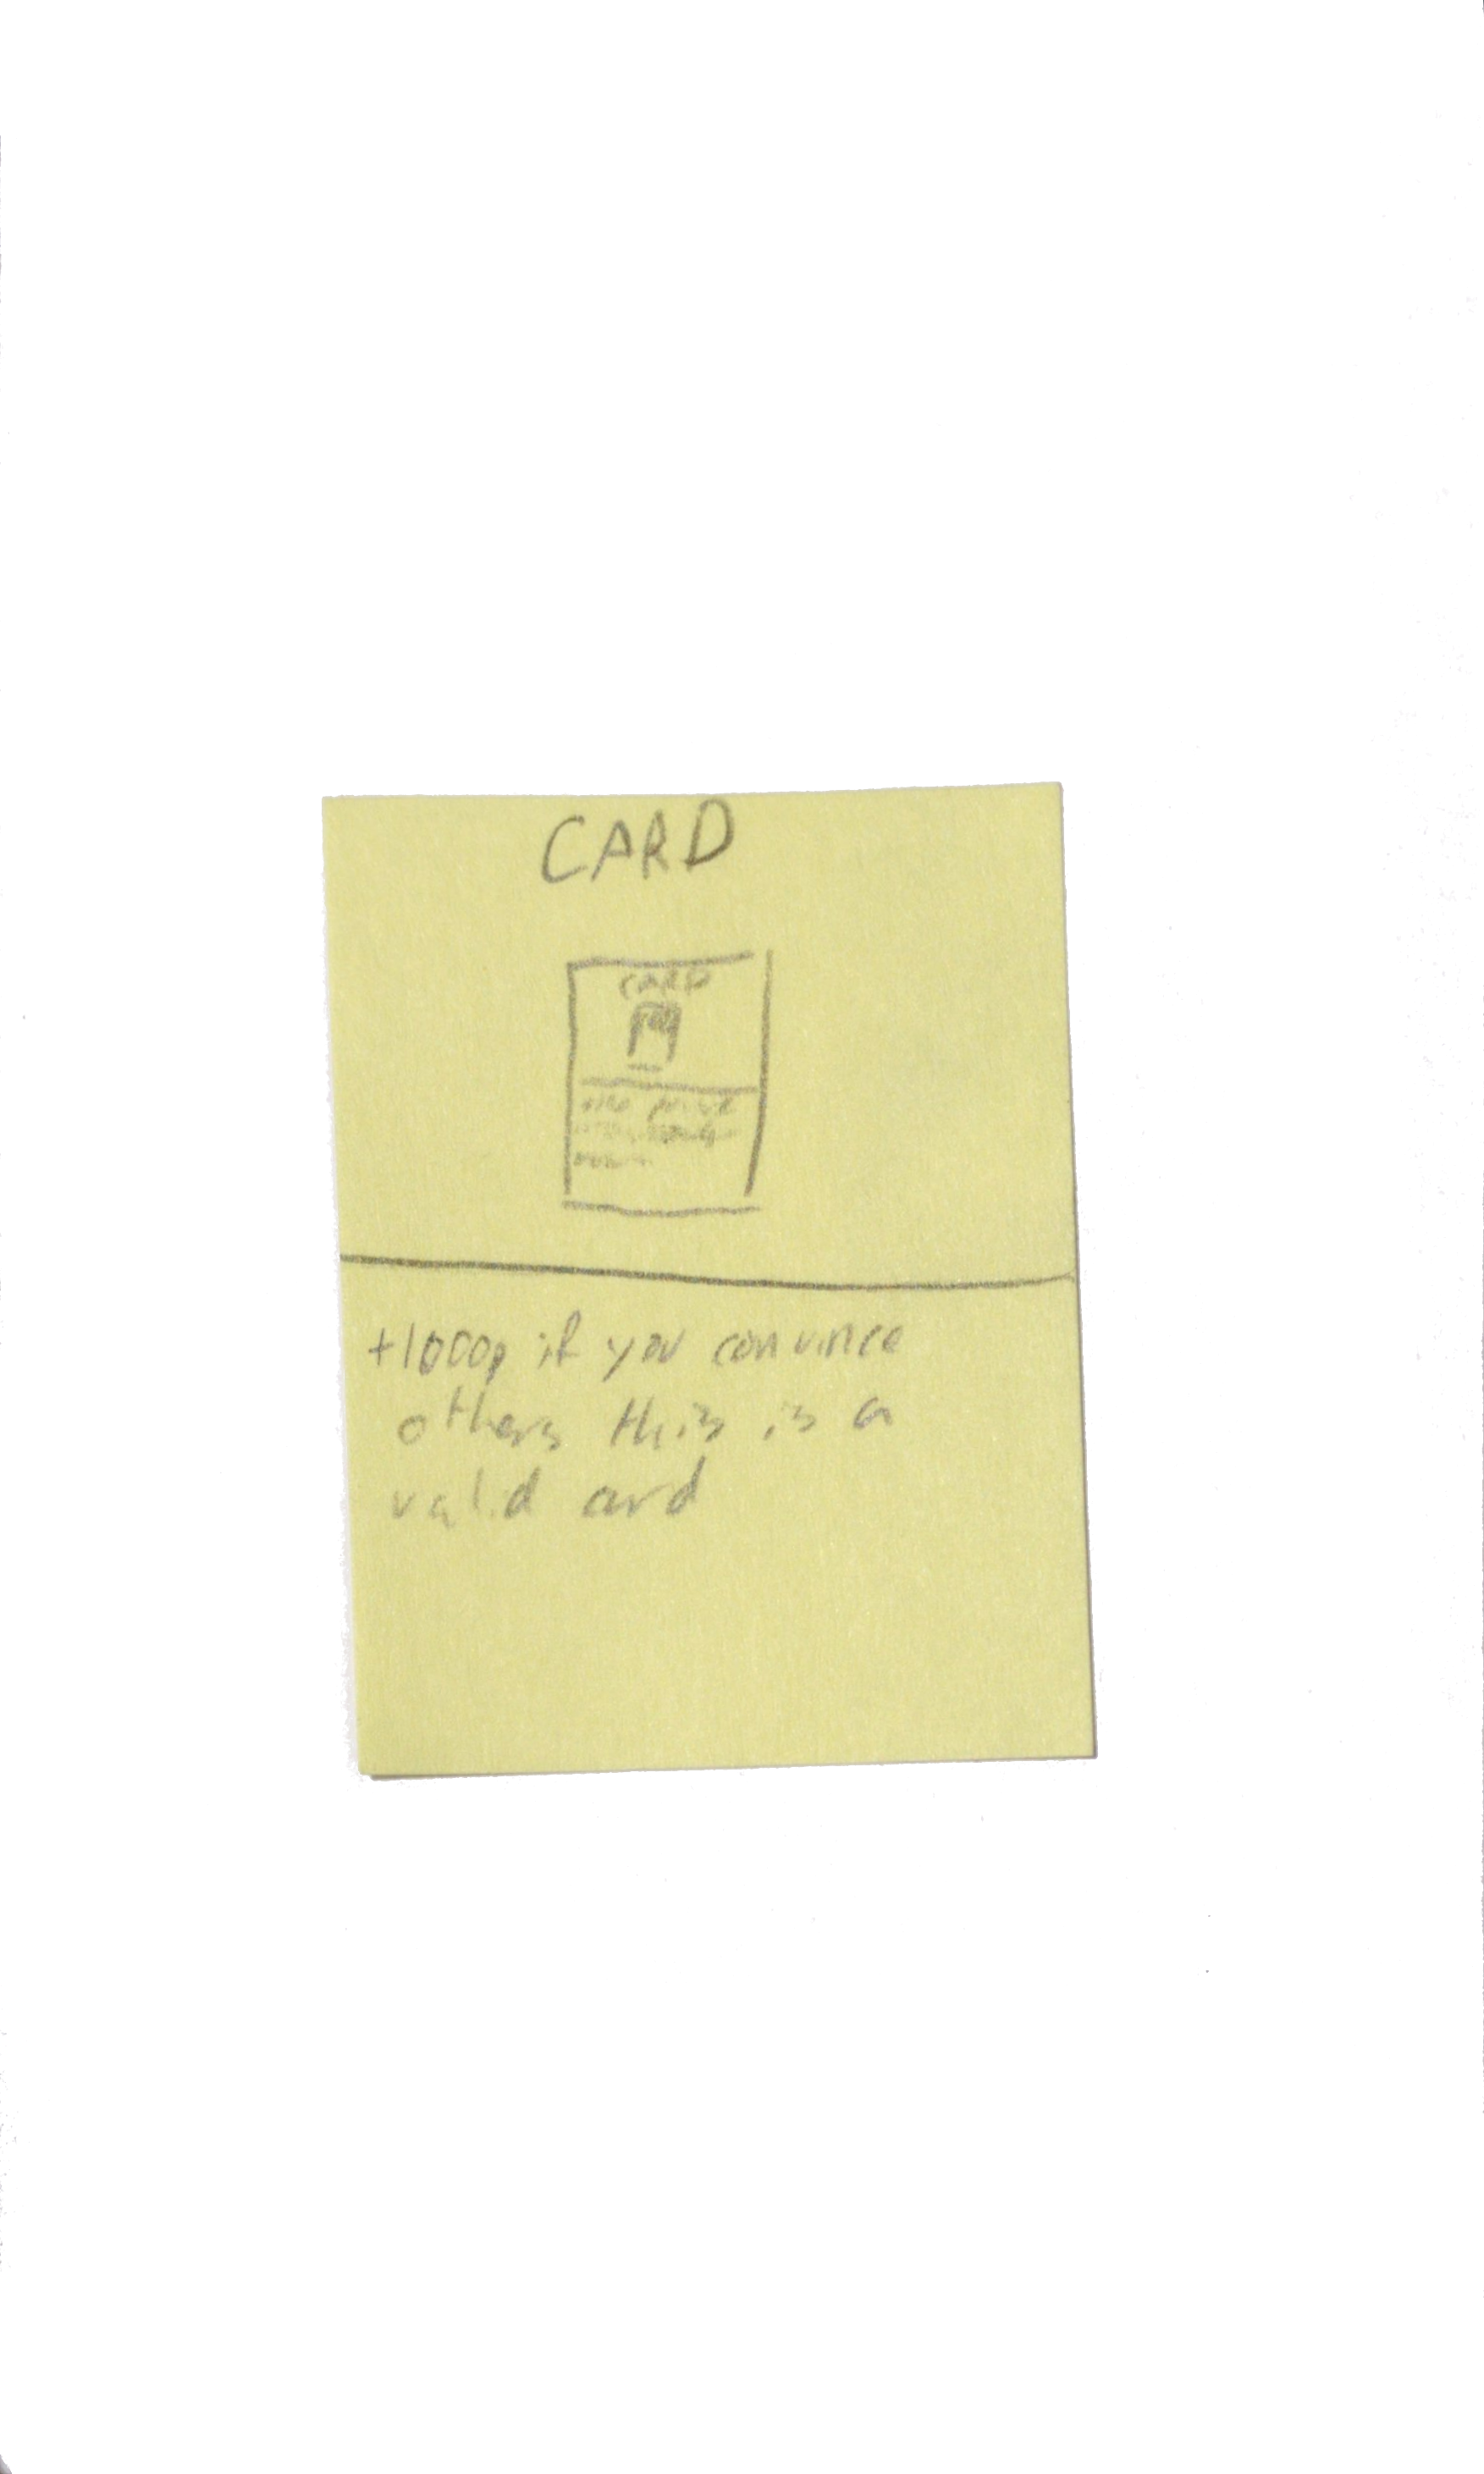 CARD
CARD
+1000p if you convince
others this is a
valid card